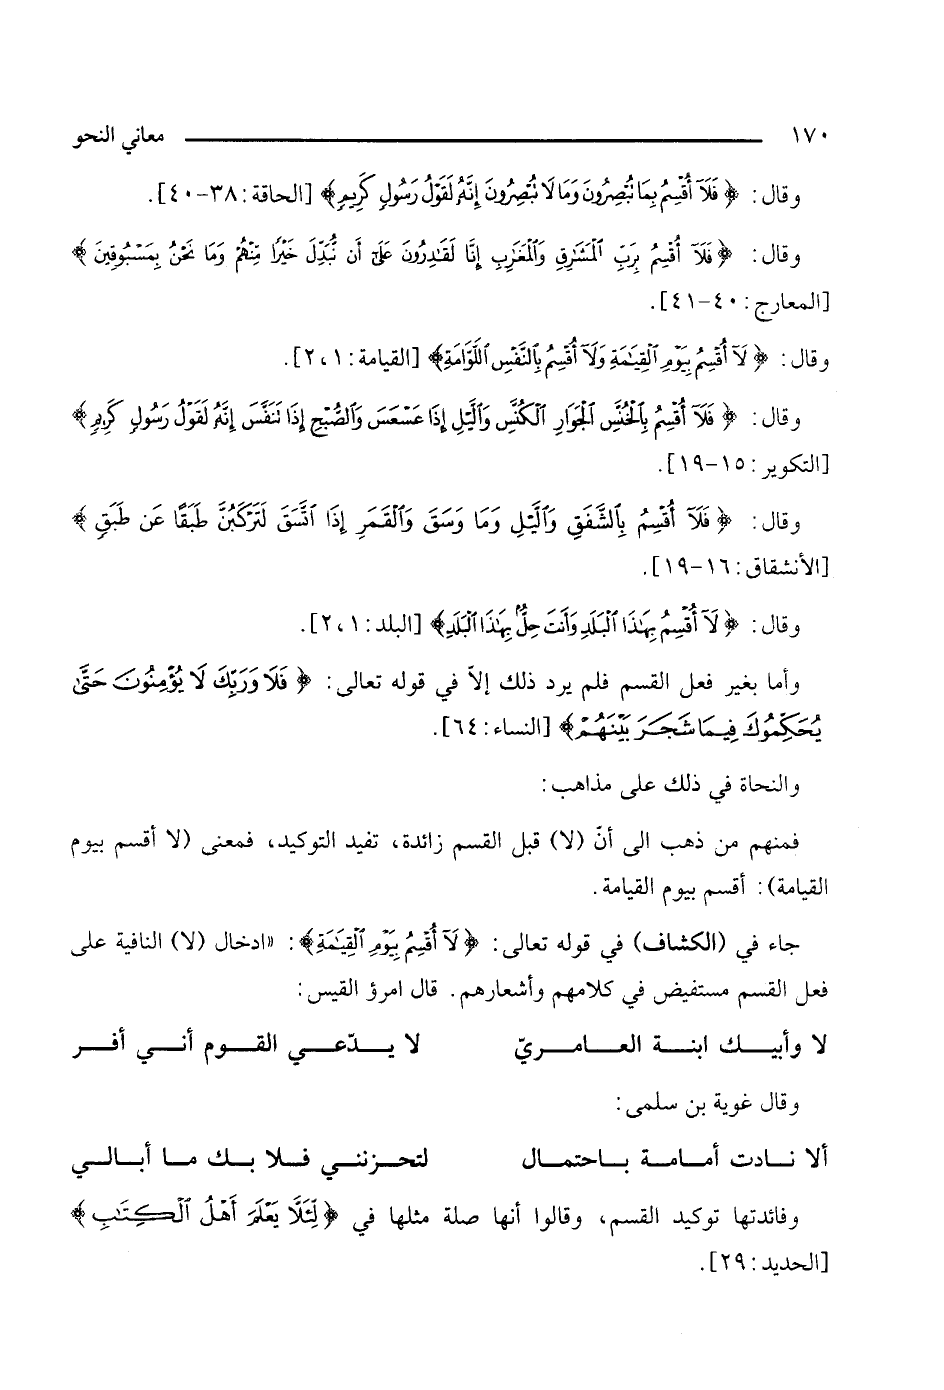 ١٧٠ معاني النحو
وقال: ﴿فَلَآ أُقْسِمُ بِمَا تُبْصِرُونَ وَمَا لَا تُبْصِرُونَ إِنَّهُۥ لَقَوْلُ رَسُولٍ كَرِيمٍ﴾ [الحاقة: ٣٨-٤٠].
وقال: ﴿فَلَآ أُقْسِمُ بِرَبِّ ٱلْمَشَٰرِقِ وَٱلْمَغَٰرِبِ إِنَّا لَقَٰدِرُونَ عَلَىٰٓ أَن نُّبَدِّلَ خَيْرًا مِّنْهُمْ وَمَا نَحْنُ بِمَسْبُوقِينَ﴾
[المعارج: ٤٠-٤١].
وقال: ﴿لَآ أُقْسِمُ بِيَوْمِ ٱلْقِيَٰمَةِ وَلَآ أُقْسِمُ بِٱلنَّفْسِ ٱللَّوَّامَةِ﴾ [القيامة: ١، ٢].
وقال: ﴿فَلَآ أُقْسِمُ بِٱلْخُنَّسِ ٱلْجَوَارِ ٱلْكُنَّسِ وَٱلَّيْلِ إِذَا عَسْعَسَ وَٱلصُّبْحِ إِذَا تَنَفَّسَ إِنَّهُۥ لَقَوْلُ رَسُولٍ كَرِيمٍ﴾
[التكوير: ١٥-١٩].
وقال: ﴿فَلَآ أُقْسِمُ بِٱلشَّفَقِ وَٱلَّيْلِ وَمَا وَسَقَ وَٱلْقَمَرِ إِذَا ٱتَّسَقَ لَتَرْكَبُنَّ طَبَقًا عَن طَبَقٍ﴾
[الأنشقاق: ١٦-١٩].
وقال: ﴿لَآ أُقْسِمُ بِهَٰذَا ٱلْبَلَدِ وَأَنتَ حِلٌّۢ بِهَٰذَا ٱلْبَلَدِ﴾ [البلد: ١، ٢].
وأما بغير فعل القسم فلم يرد ذلك إلاّ في قوله تعالى: ﴿فَلَا وَرَبِّكَ لَا يُؤْمِنُونَ حَتَّىٰ
يُحَكِّمُوكَ فِيمَا شَجَرَ بَيْنَهُمْ﴾ [النساء: ٦٤].
والنحاة في ذلك على مذاهب:
فمنهم من ذهب الى أنّ (لا) قبل القسم زائدة، تفيد التوكيد، فمعنى (لا أقسم بيوم
القيامة): أقسم بيوم القيامة.
جاء في (الكشاف) في قوله تعالى: ﴿لَآ أُقْسِمُ بِيَوْمِ ٱلْقِيَٰمَةِ﴾: «ادخال (لا) النافية على
فعل القسم مستفيض في كلامهم وأشعارهم. قال امرؤ القيس:
لا وأبيك ابنة العامريّ لا يدّعي القوم أني أفر
وقال غوية بن سلمى:
ألا نادت أمامة باحتمال لتحزنني فلا بك ما أبالي
وفائدتها توكيد القسم، وقالوا أنها صلة مثلها في ﴿لِّئَلَّا يَعْلَمَ أَهْلُ ٱلْكِتَٰبِ﴾
[الحديد: ٢٩].